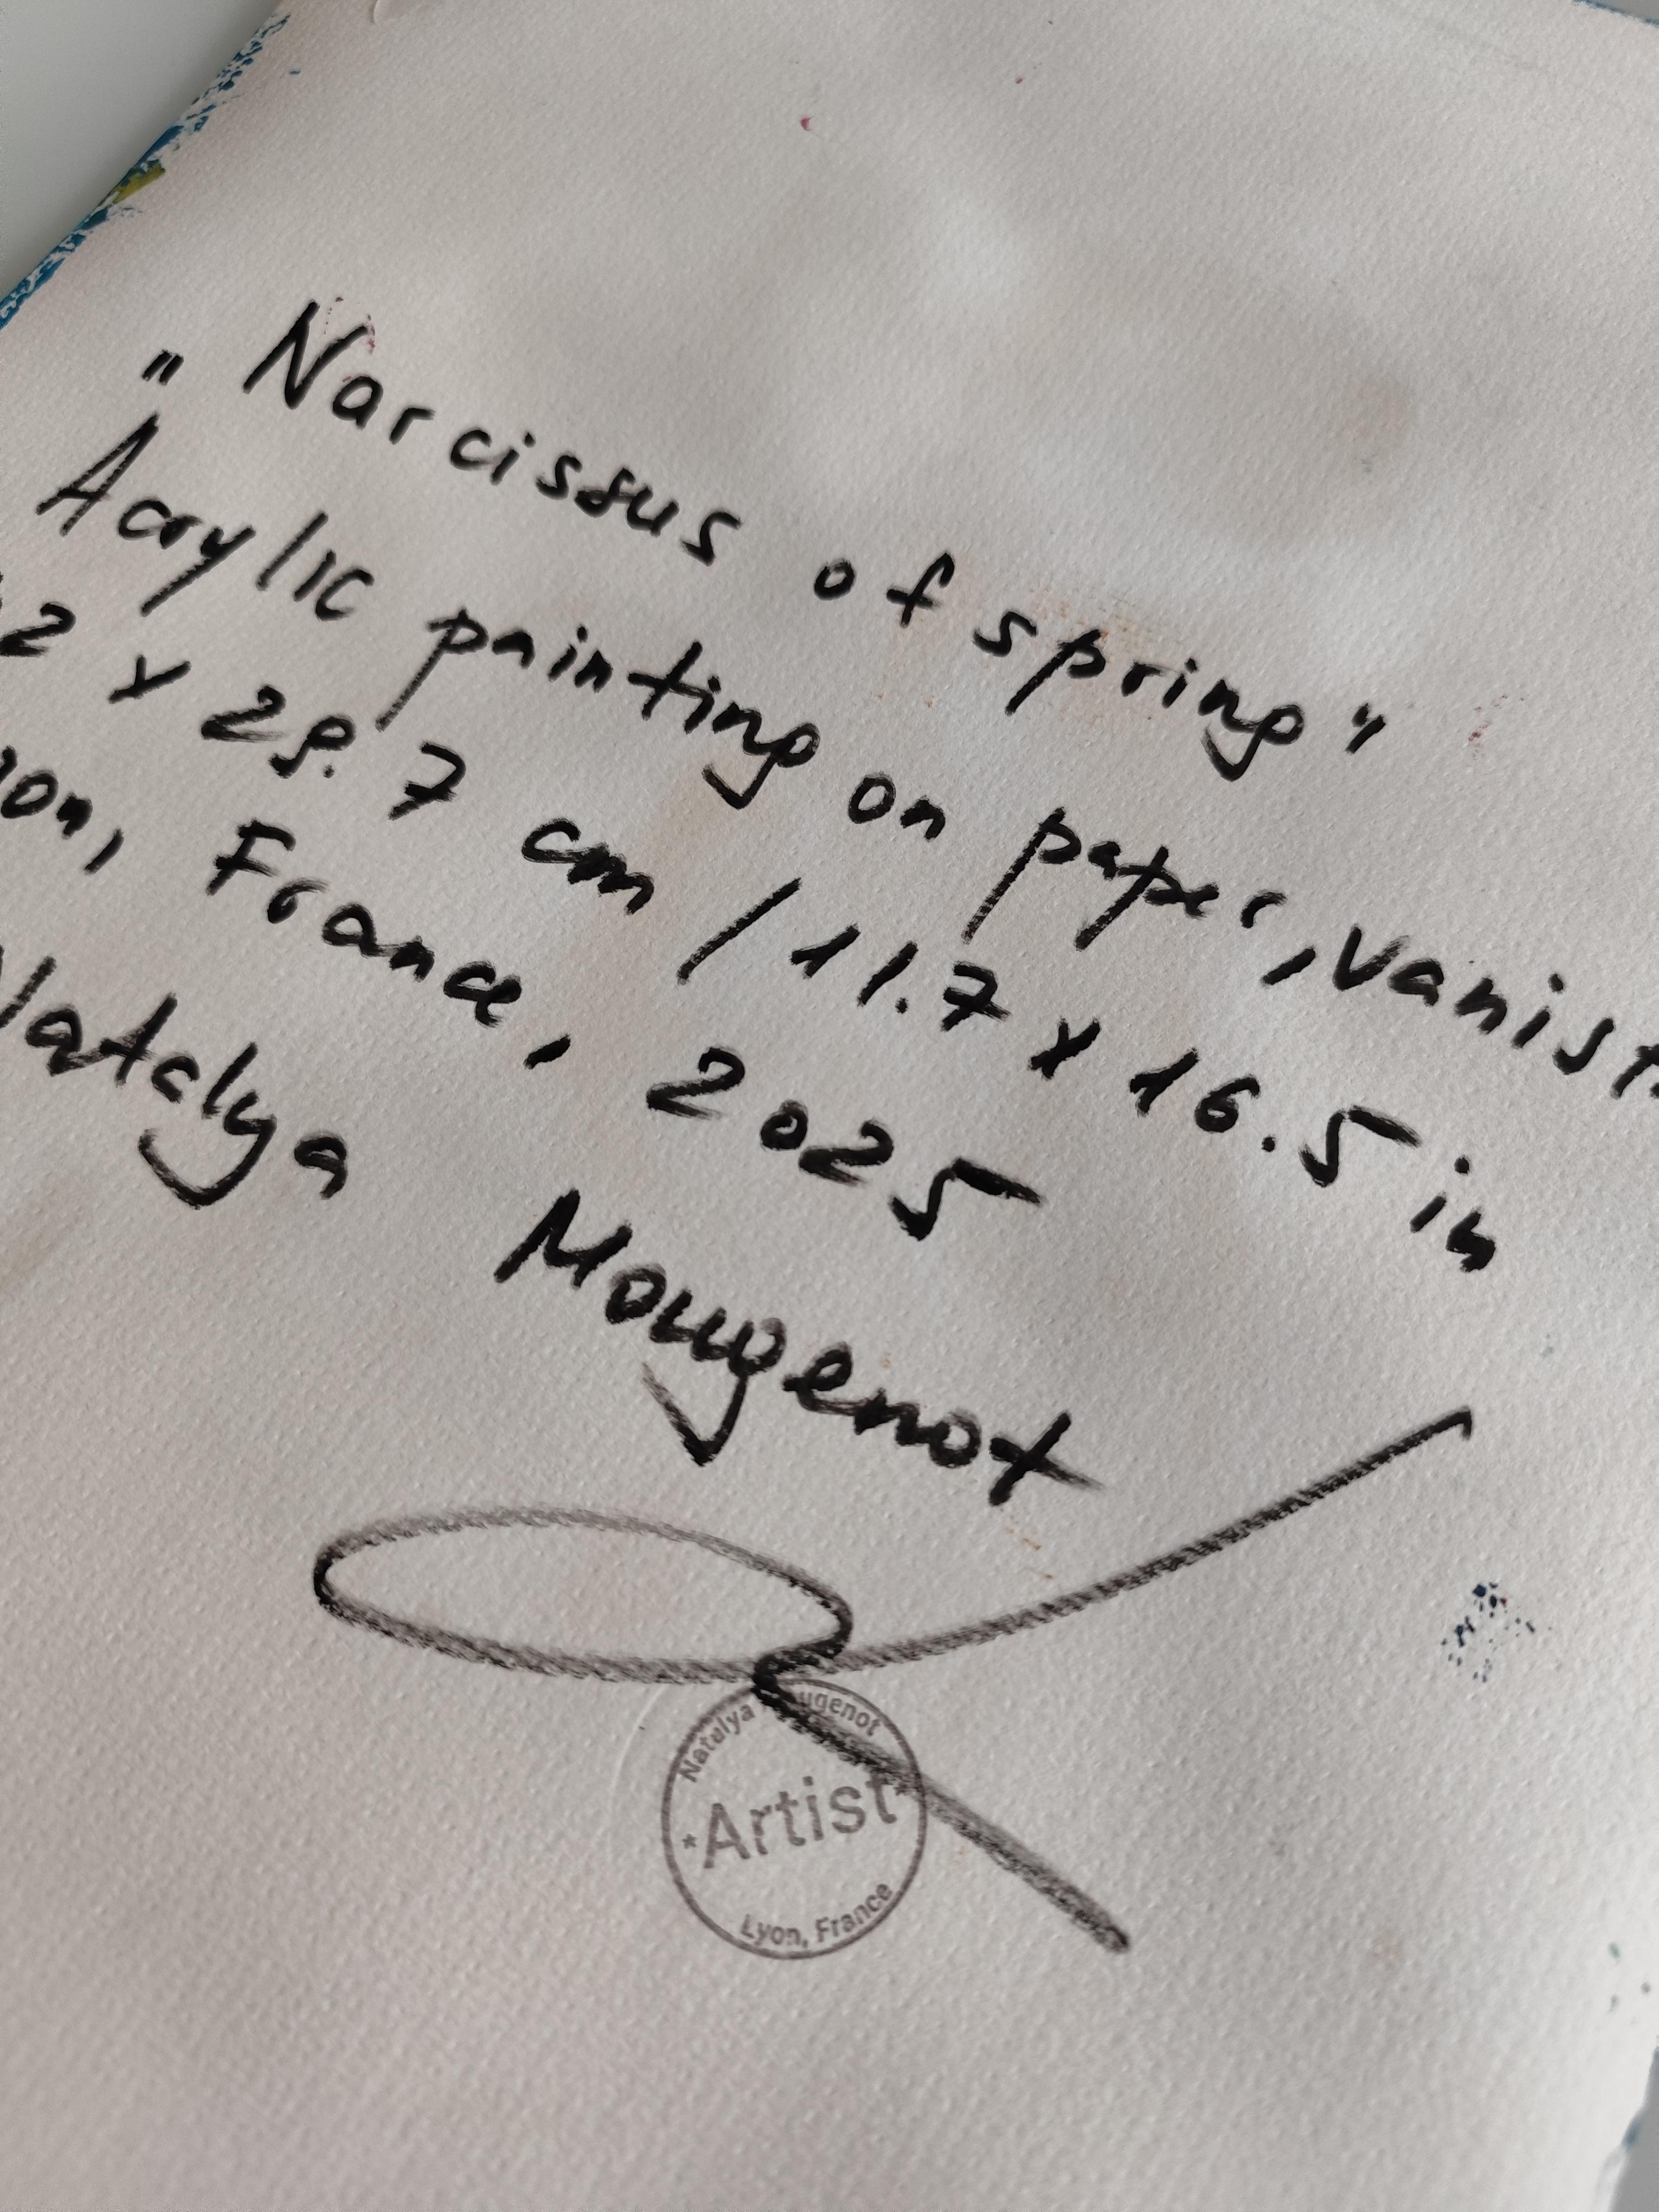 "Narcissus of spring"
Acrylic painting on paper, vanist
42 x 29.7 cm / 11.7 x 16.5 in
yon, France, 2025
Natalya Mougenot
Natalya ugenot
*Artist*
Lyon, France